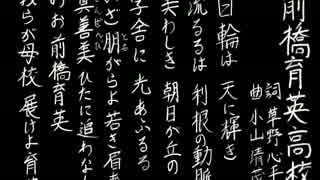 前橋育英高校
詞 草野心平
曲 小山清茂
日輪は 天に輝き
流るるは 利根の動脈
美わしき 朝日が丘の
学舎に 光あふるる
いざ朋がらよ若き眉
真善美ひたに追わな
おお前橋育英
我らが母校 展けよ育